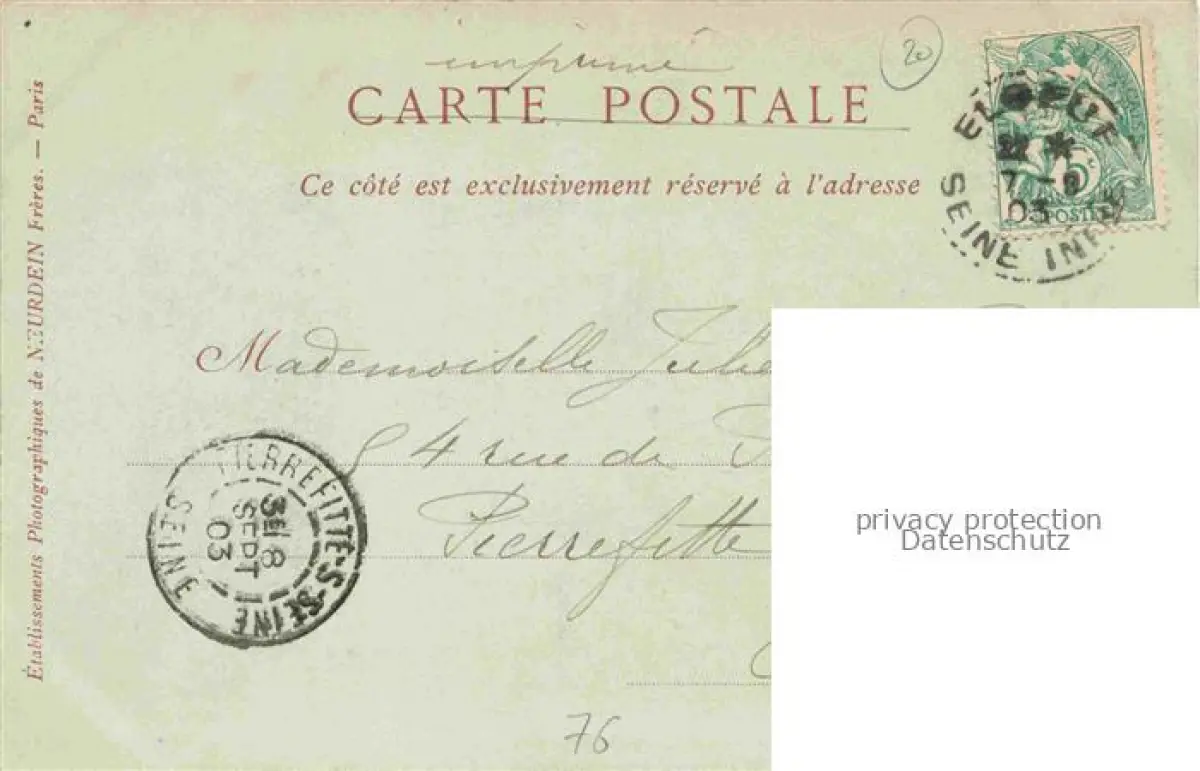 imprimé
20
CARTE POSTALE
Ce côté est exclusivement réservé à l'adresse
Établissements Photographiques de NEURDEIN Frères. — Paris
ELBEUF
7 - 9
03
SEINE INFRE
5
POSTES
Mademoiselle
54 rue de
Pierrefitte
PIERREFITTE-S-SEINE
8
SEPT
03
SEINE
76
privacy protection
Datenschutz